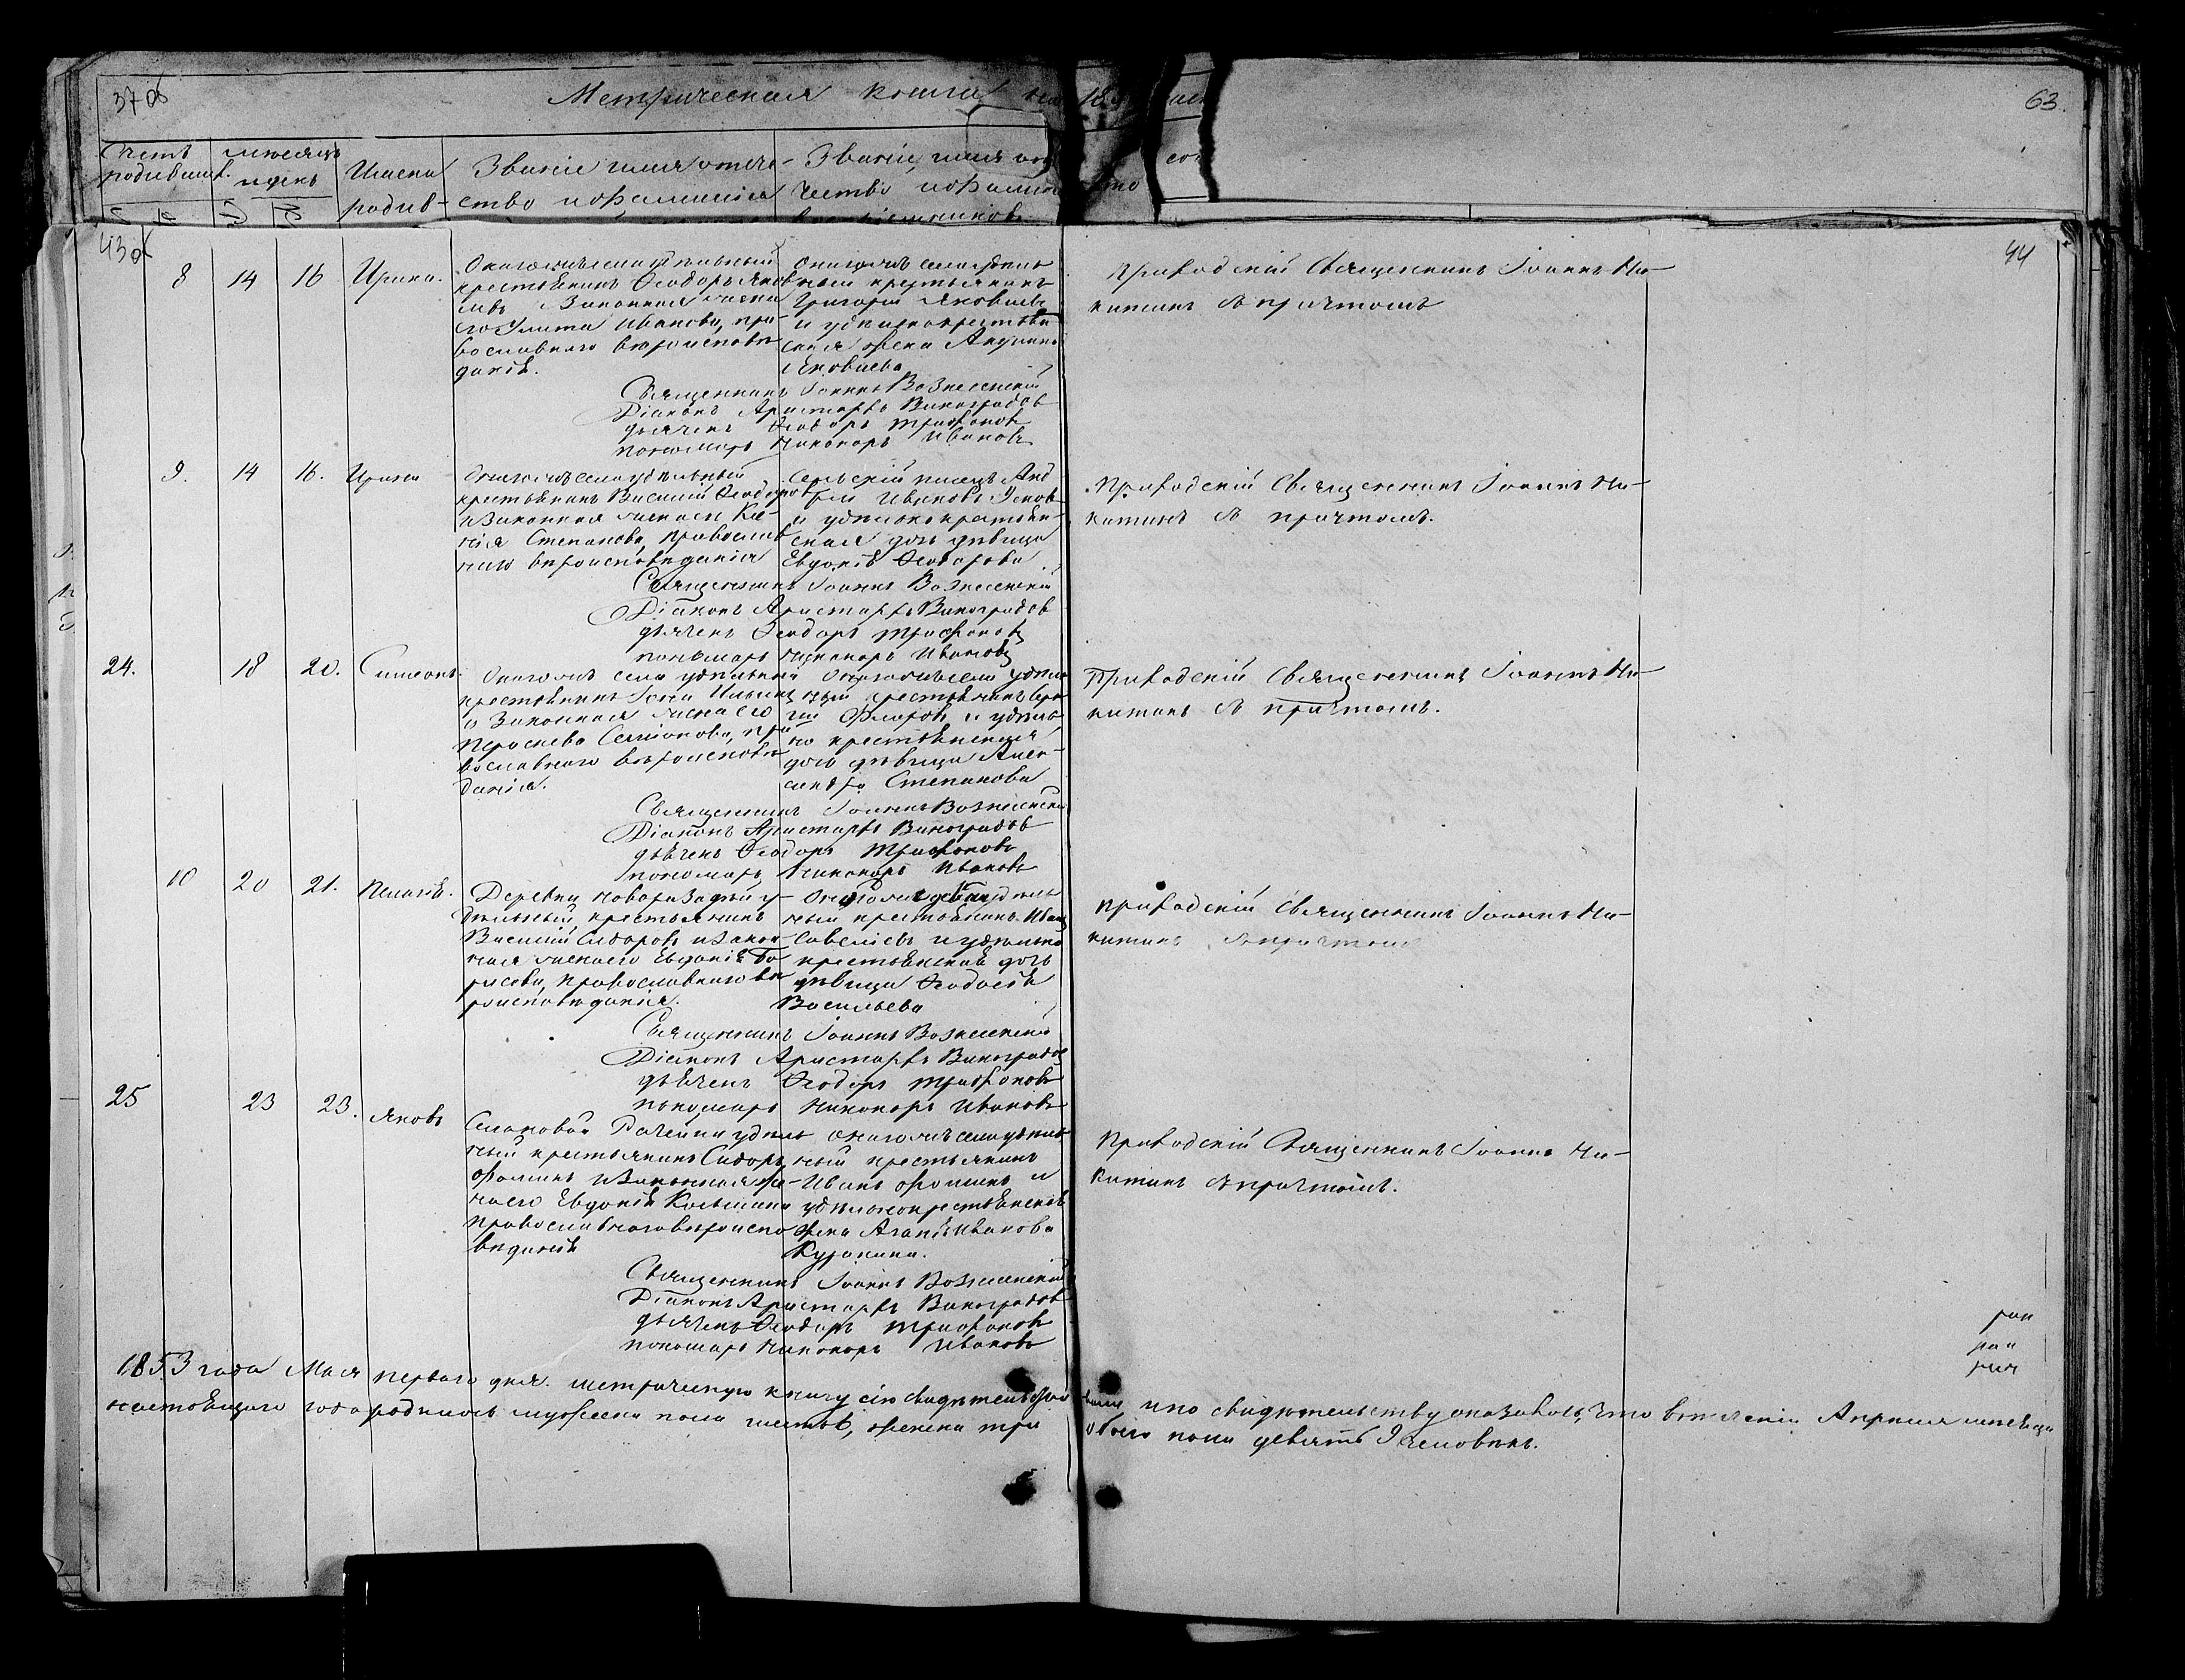 37об
Метрическая книга на 18
63.
Счетъ родивших. мѣсяцъ и день Имена родив- Званіе имя отче- ство и фамилія Званіе, имя чество и фамилія
43об
44
8 14 16 Ирина.
Онагожъ села удѣльный
крестьянинъ Ѳеодоръ Яков
левъ Законная жена
его Улита Иванова, пра-
вославнаго вѣроисповѣ
данія.
Онагожъ села удѣль
ный крестьянинъ
Григорій Яковлевъ
и удѣльнокрестьян
ская жена Акулина
Яковлева
Приходскій Священникъ Іоаннъ Ни-
китинъ съ причтомъ
Священникъ Іоаннъ Вознесенскій
Діаконъ Аристархъ Виноградовъ
дьячекъ Ѳеодоръ Трифоновъ
пономарь Никаноръ Ивановъ
9. 14 16. Ирина
Онагожъ села удѣльный
крестьянинъ Василій Ѳеодоровъ
и Законная жена его Ксе-
нія Степанова, православ
наго вѣроисповѣданія
Сельскій писецъ Анд
рей Ивановъ
и удѣльно крестьян-
ская дочь дѣвица
Евдокія Ѳеодорова
Приходскій Священникъ Іоаннъ Ни-
китинъ съ причтомъ.
Священникъ Іоаннъ Вознесенскій
Діаконъ Аристархъ Виноградовъ
дьячекъ Ѳеодоръ Трифоновъ
пономарь Никаноръ Ивановъ
24. 18 20. Симеонъ.
Онагожъ села удѣльный
крестьянинъ Ильинъ
и Законная жена его
Параскева Семіонова, пра
вославнаго вѣроисповѣ
данія.
Онагожъ села удѣль
ный крестьянинъ Сер
гій Флоровъ и удѣль
но крестьянская
дочь дѣвица Алек-
сандра Степанова
Приходскій Священникъ Іоаннъ Ни-
китинъ съ причтомъ.
Священникъ Іоаннъ Вознесенскій
Діаконъ Аристархъ Виноградовъ
дьячекъ Ѳеодоръ Трифоновъ
пономарь Никаноръ Ивановъ
10 20 21. Пелагія.
Деревни у-
дѣльный крестьянинъ
Василій Сидоровъ и Закон
ная жена его Евдокія Бо
рисова, православнаго вѣ
роисповѣданія.
удѣль
ный крестьянинъ Иванъ
Савеліевъ и удѣльно
крестьянская дочь
дѣвица Ѳеодосія
Васильева
Приходскій Священникъ Іоаннъ Ни-
китинъ съ причтомъ
Священникъ Іоаннъ Вознесенскій
Діаконъ Аристархъ Виноградовъ
дьячекъ Ѳеодоръ Трифоновъ
пономарь Никаноръ Ивановъ
25 23 23. Яковъ
Села Новой Рачейки удѣль
ный крестьянинъ Сидоръ
Фоминъ и Законная же-
на его Евдокія Козьмина
православнаго вѣроиспо
вѣданія
Онагожъ села удѣль
ный крестьянинъ
Иванъ Фоминъ и
удѣльнокрестьянская
жена Агафія Иванова
Приходскій Священникъ Іоаннъ Ни-
китинъ съ причтомъ.
Священникъ Іоаннъ Вознесенскій
Діаконъ Аристархъ Виноградовъ
дьячекъ Ѳеодоръ Трифоновъ
пономарь Никаноръ Ивановъ
1853 года Мая перваго дня. метрическую книгу сію свидѣтельствовали и по свидѣтельству оказалось, что въ теченіи Апрѣля мѣсяца
настоящаго года родилось мужеска пола шесть, женска три обоего пола девять 9 человѣкъ.